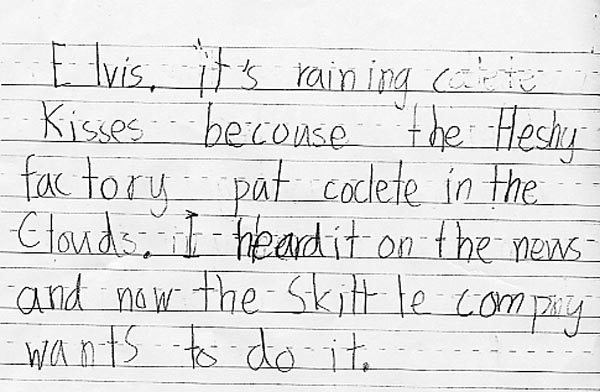 Elvis. it's raining calete
Kisses becouse the Heshy
factory pat coclete in the
Clouds. I heard it on the news
and now the Skittle compny
wants to do it.